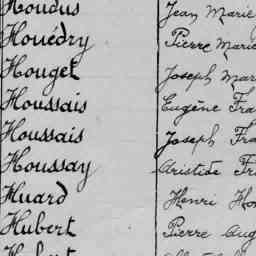 Houdus Jean Marie
Houédry Pierre Marie
Houget Joseph Mar
Houssais Eugène Fra
Houssais Joseph Fra
Houssay Aristide Fr
Huard Henri
Hubert Pierre Aug